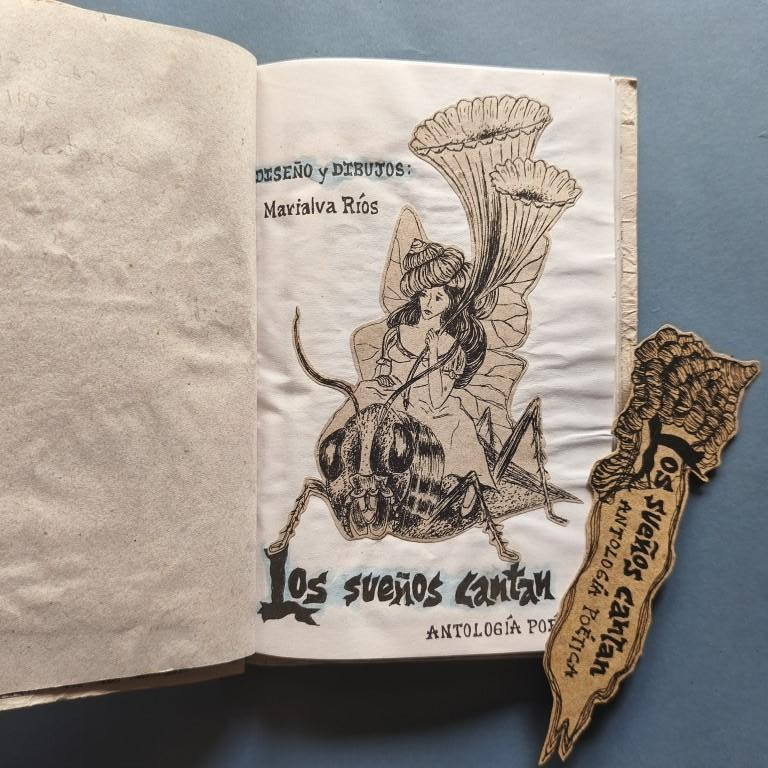 DISEÑO y DIBUJOS:
Marialva Ríos
Los sueños cantan
ANTOLOGÍA
Los sueños cantan
ANTOLOGÍA POÉTICA